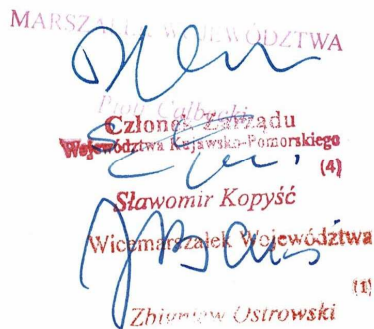 MARSZAŁEK WOJEWÓDZTWA
Piotr Całbecki
Członek Zarządu
Województwa Kujawsko-Pomorskiego
(4)
Sławomir Kopyść
Wicemarszałek Województwa
(1)
Zbigniew Ostrowski